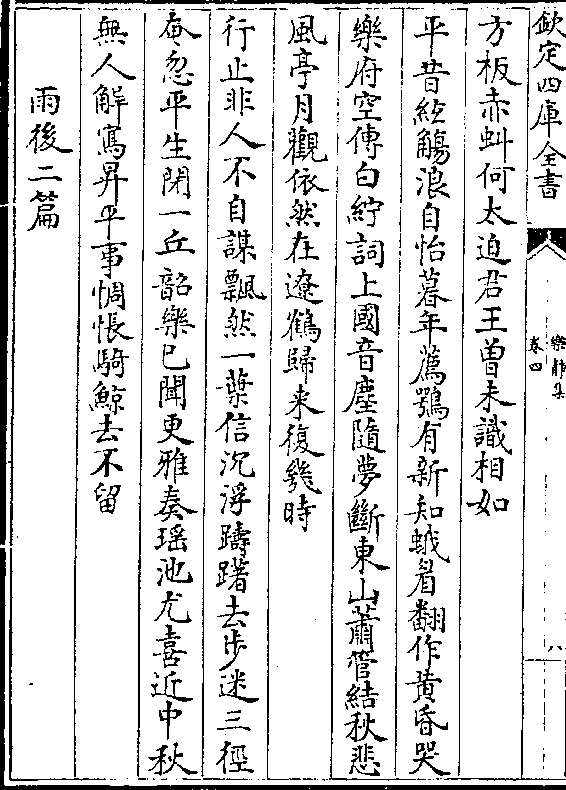 欽定四庫全書
樂軒集
卷四
八
方板赤虯何太迫君王曽未識相如
平昔絃觴浪自怡暮年薦鶚有新知蛾眉翻作黄昏哭
樂府空傳白紵詞上國音塵隨夢斷東山簫管結秋悲
風亭月觀依然在遼鶴歸来復幾時
行止非人不自謀飄然一葉信沉浮躊躇去步迷三徑
奄忽平生閉一丘韶樂已聞更雅奏瑶池尤喜近中秋
無人解寫昇平事惆悵騎鯨去不留
雨後二篇